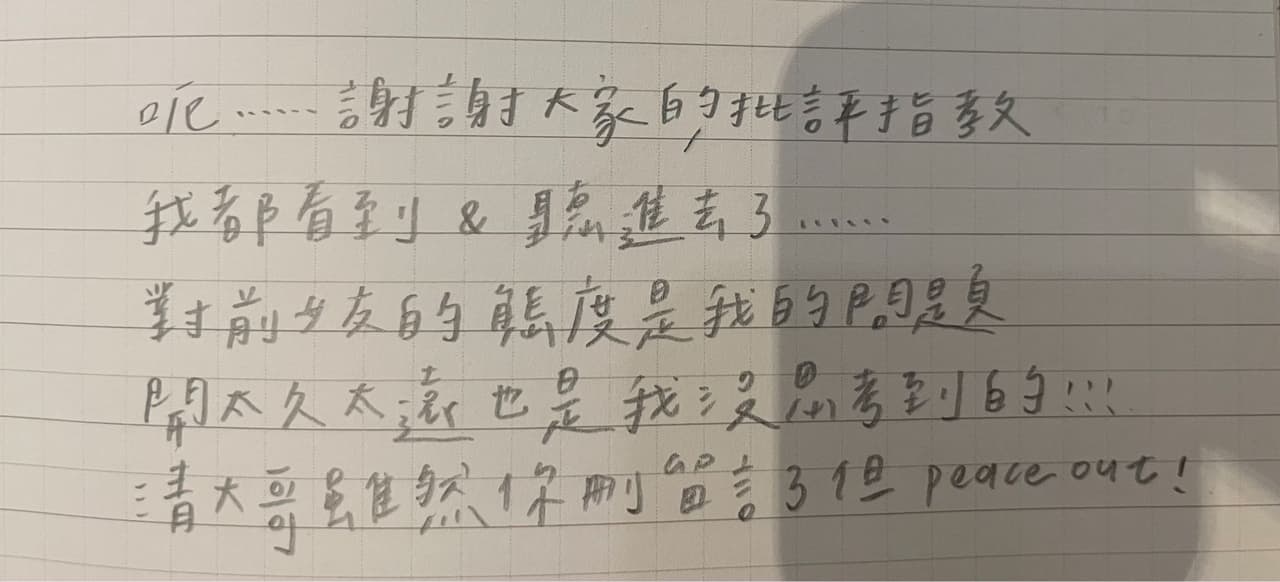 呃⋯⋯謝謝大家的批評指教
我都看到 & 聽進去了⋯⋯
對前女友的態度是我的問題
開太久太遠也是我沒思考到的!!!
清大哥雖然你刪留言了但 peace out!